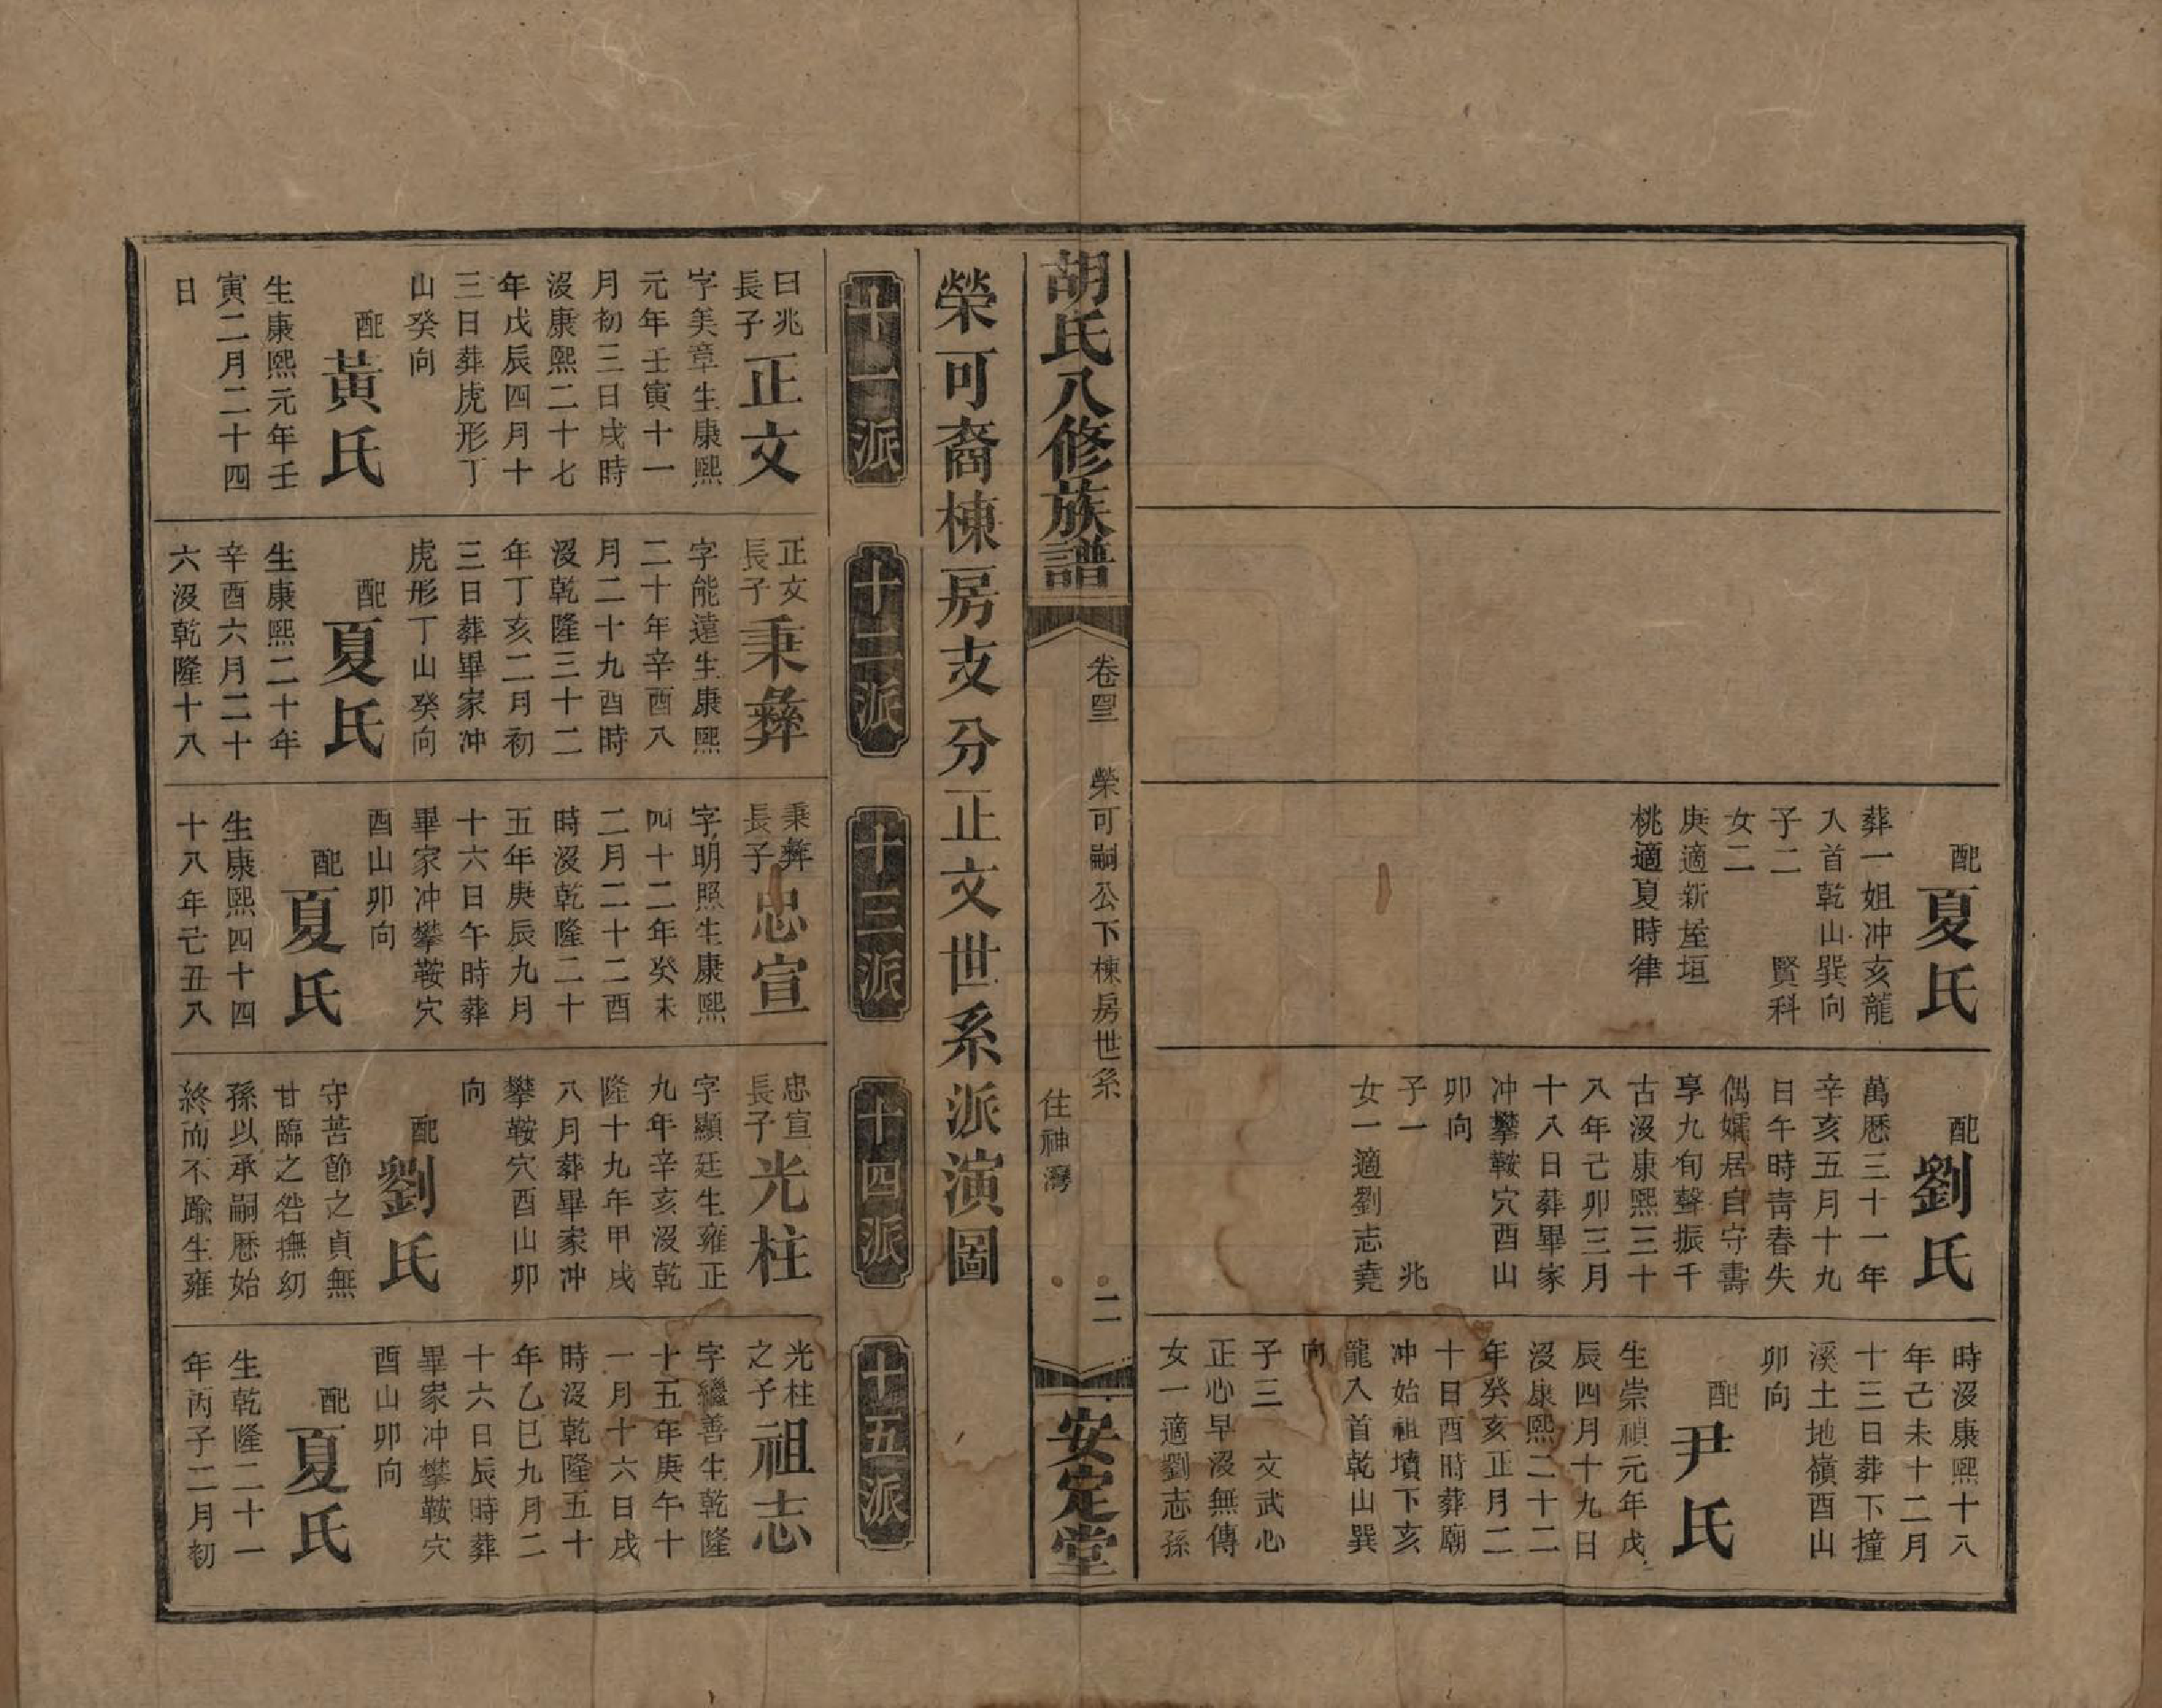 配夏氏
葬一姐冲亥龍
入首乾山巽向
子二 賢科
女二
庚適新屋垣
桃適夏時律
配劉氏
萬曆三十一年
辛亥五月十九
日午時青春失
偶孀居自守壽
享九旬聲振千
古沒康熙三十
八年己卯三月
十八日葬畢家
冲攀鞍穴酉山
卯向
子一 兆
女一適劉志堯
時沒康熙十八
年己未十二月
十三日葬下撞
溪土地嶺酉山
卯向
配尹氏
生崇禎元年戊
辰四月十九日
沒康熙二十二
年癸亥正月二
十日酉時葬廟
冲始祖墳下亥
龍入首乾山巽
向
子三 文武心
正心早沒無傳
女一適劉志孫
胡氏八修族譜
卷四三 榮可嗣公下棟房世系 二
住神灣
安定堂
榮可裔棟房支分正文世系派演圖
十一派
十二派
十三派
十四派
十五派
曰兆
長子
正文
字美章生康熙
元年壬寅十一
月初三日戌時
沒康熙二十七
年戊辰四月十
三日葬虎形丁
山癸向
配黃氏
生康熙元年壬
寅二月二十四
日
正文
長子
秉彝
字能遠生康熙
二十年辛酉八
月二十九酉時
沒乾隆三十二
年丁亥二月初
三日葬畢家冲
虎形丁山癸向
配夏氏
生康熙二十年
辛酉六月二十
六沒乾隆十八
秉彝
長子
忠宣
字明照生康熙
四十二年癸未
二月二十二酉
時沒乾隆二十
五年庚辰九月
十六日午時葬
畢家冲攀鞍穴
酉山卯向
配夏氏
生康熙四十四
十八年己丑八
忠宣
長子
光柱
字顯廷生雍正
九年辛亥沒乾
隆十九年甲戌
八月葬畢家冲
攀鞍穴酉山卯
向
配劉氏
守苦節之貞無
甘臨之咎撫幼
孫以承嗣歷始
終而不踰生雍
光柱
之子
祖志
字繼善生乾隆
十五年庚午十
一月十六日戌
時沒乾隆五十
年乙巳九月二
十六日辰時葬
畢家冲攀鞍穴
酉山卯向
配夏氏
生乾隆二十一
年丙子二月初